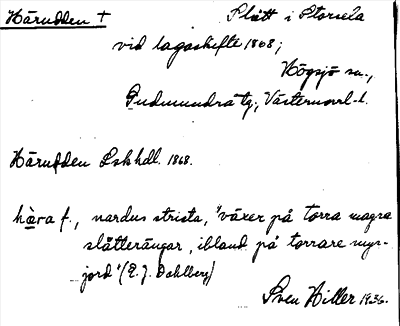 Härudden + Slått i Storsela
vid lagaskifte 1868;
Högsjö sn.,
Gudmundrå tg., Västernorrl. l.
Härudden Lskhdl. 1868.
hära f., nardus strista, "växer på torra magra
slåtterängar, ibland på torrare myr-
jord" (E. J. Dahlberg)
Sven Hiller 1936.